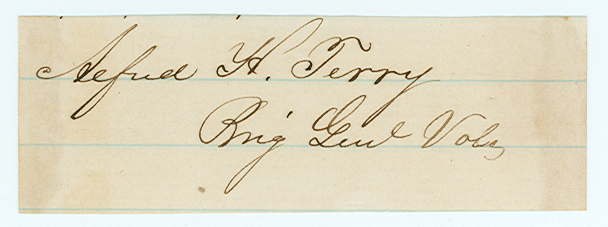 Alfred H. Terry
Brig Genl Vols